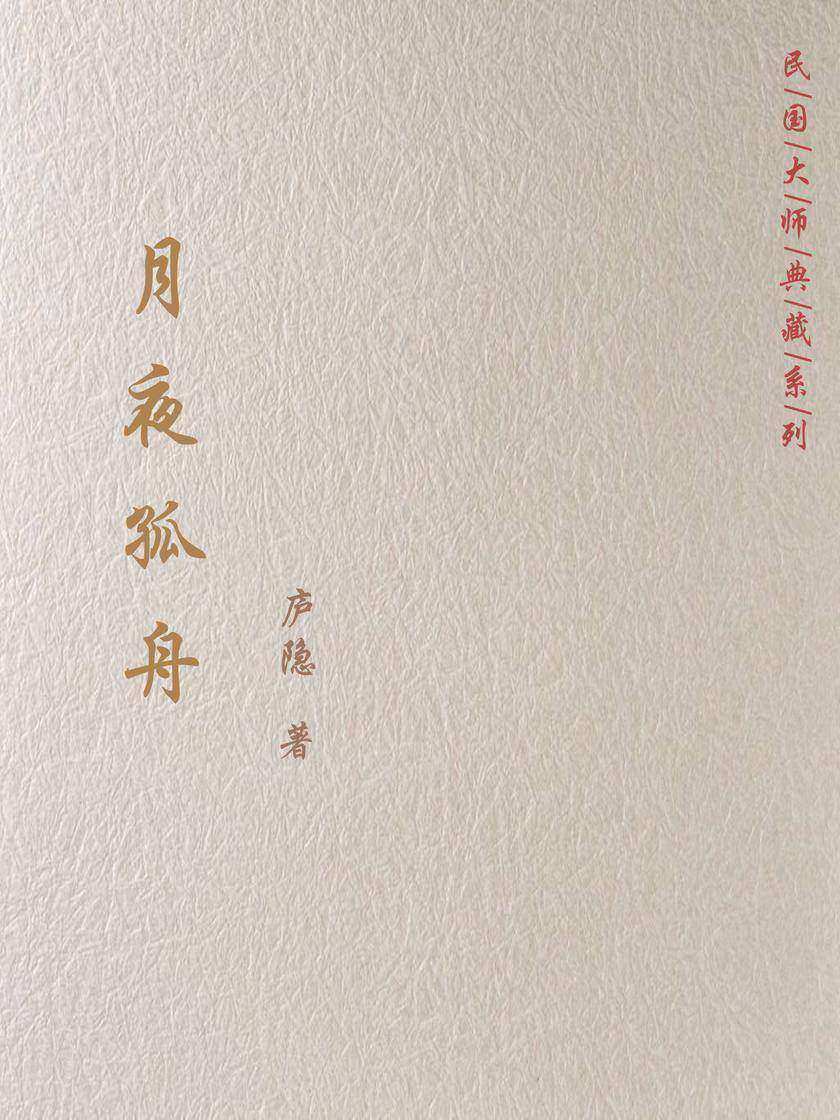 民|国|大|师|典|藏|系|列
月夜孤舟
庐隐 著